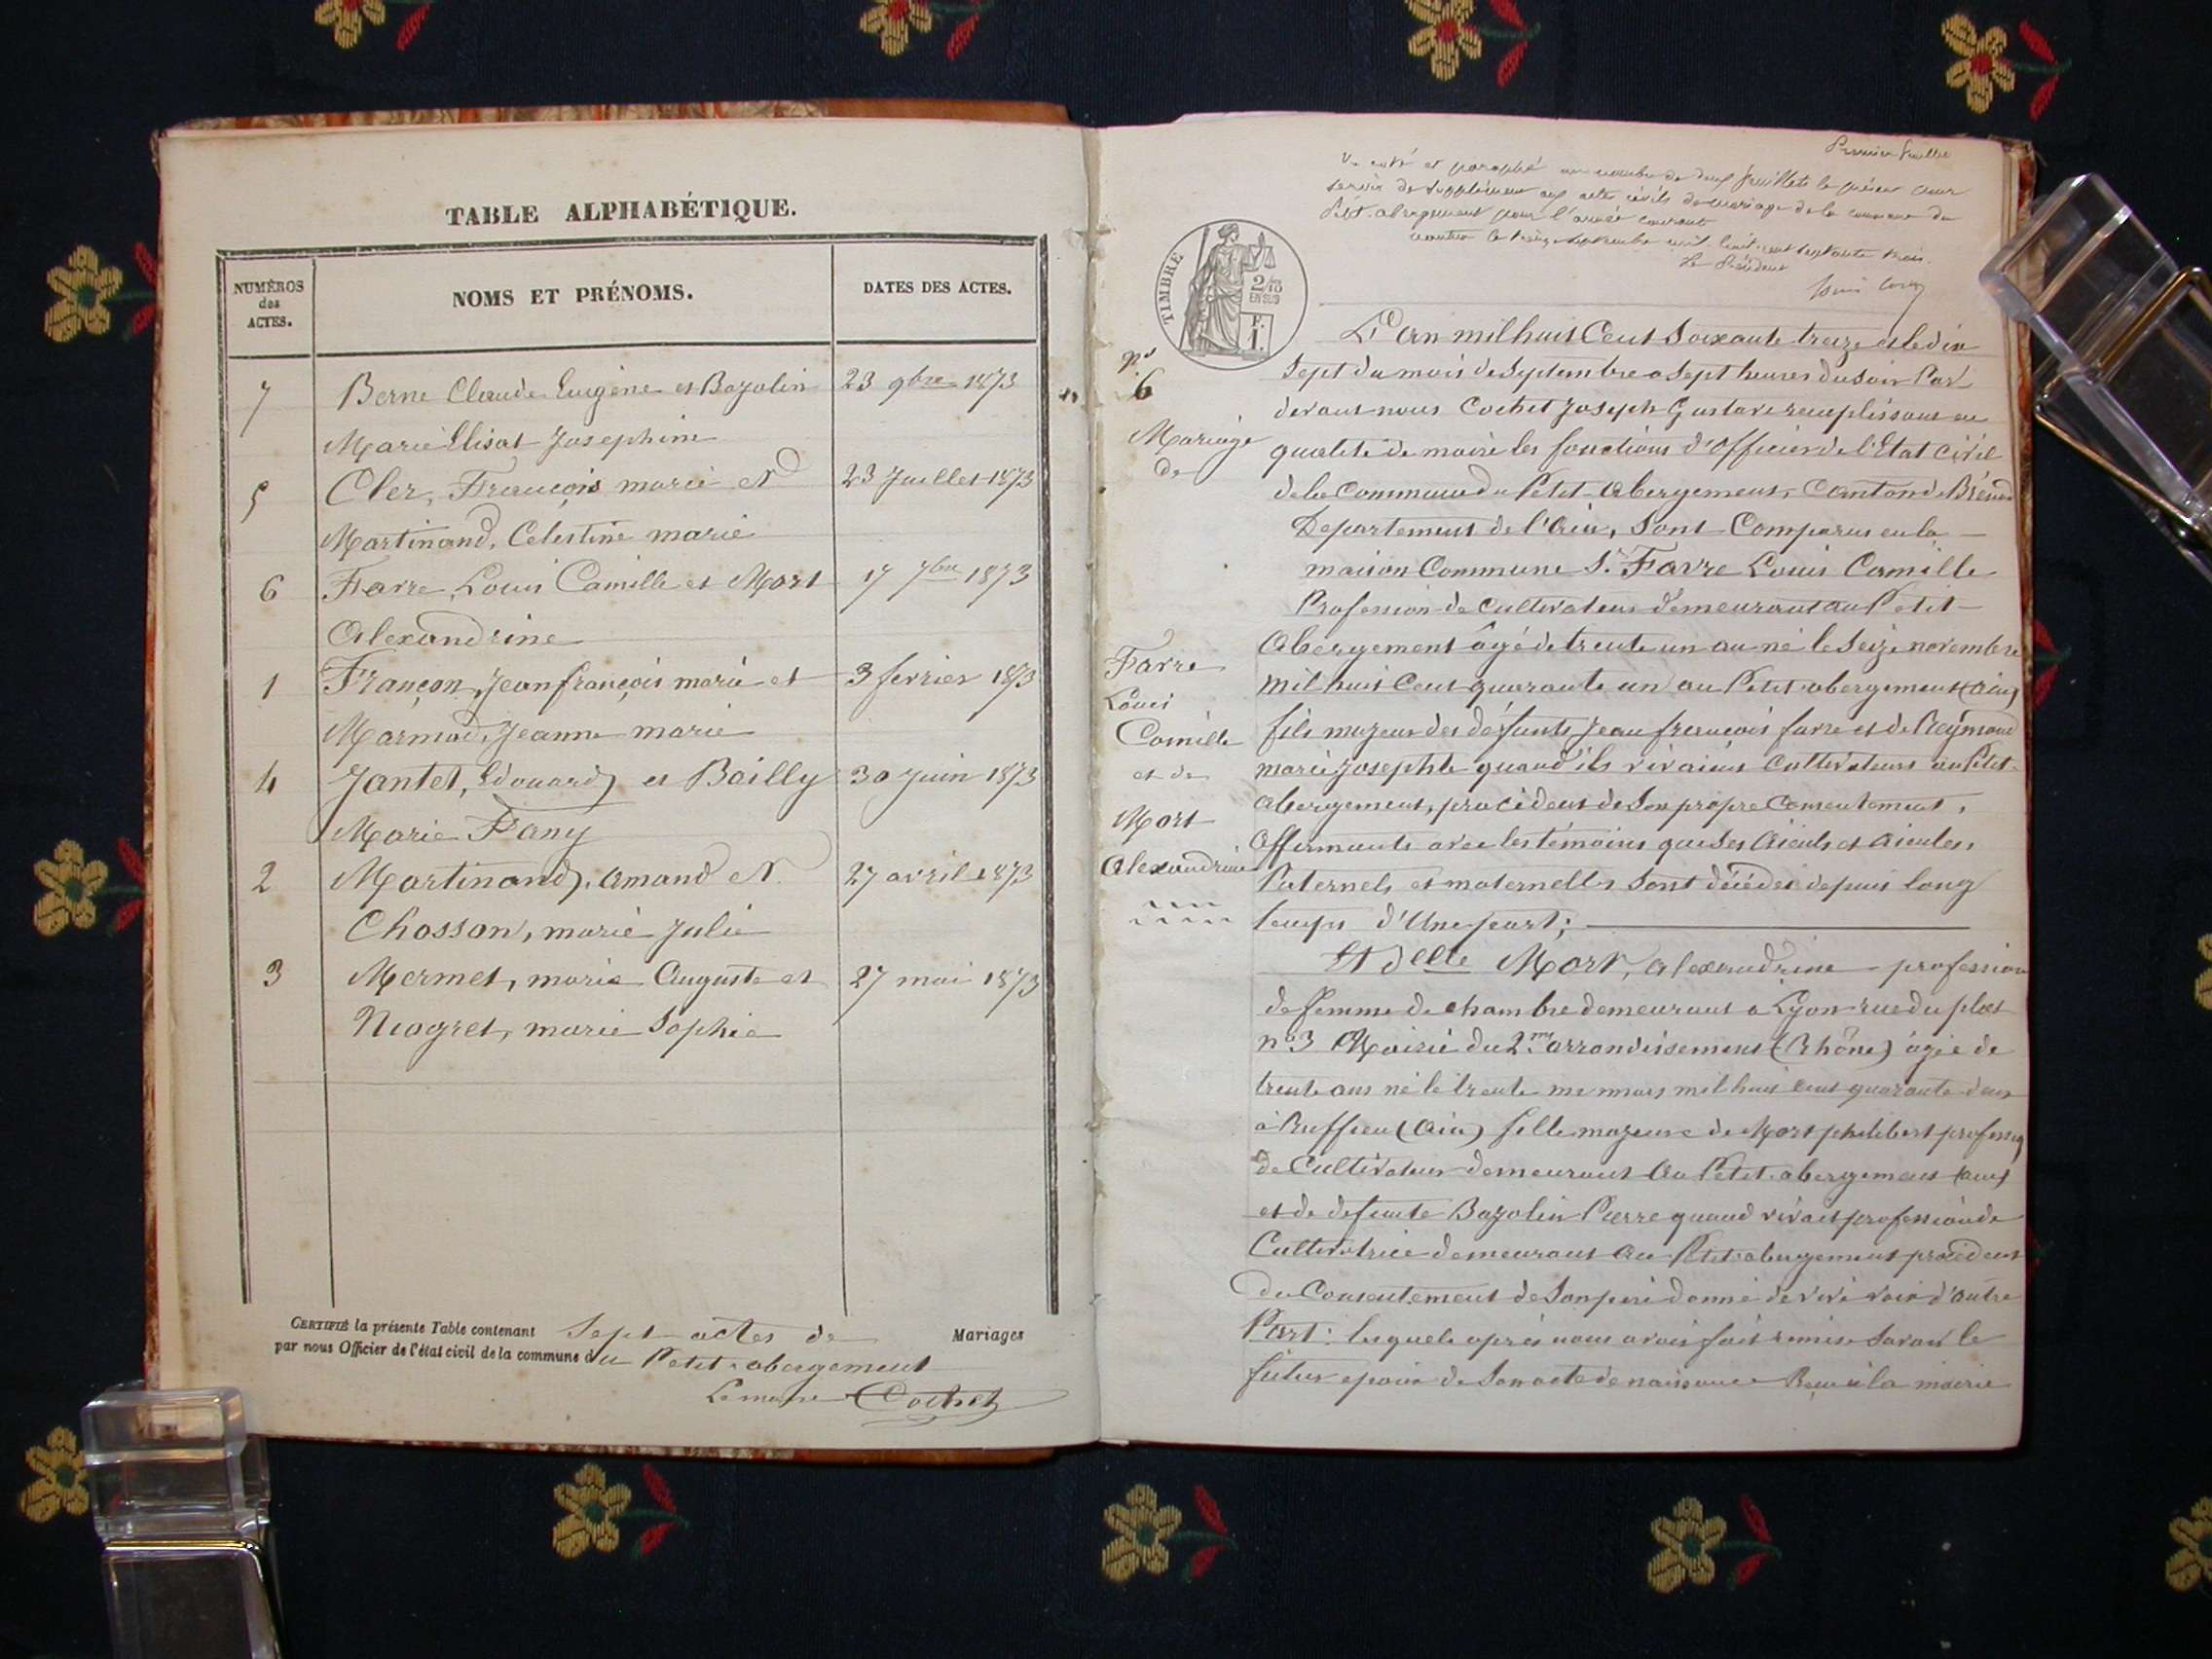 TABLE ALPHABÉTIQUE.
NUMÉROS des ACTES.
NOMS ET PRÉNOMS.
DATES DES ACTES.
7 Berne Claude Eugène et Bozolin 23 9bre 1873
Marie Elisat Josephine
5 Cler, François marie et 23 Juillet 1873
Martinand, Celestine marie
6 Favre, Louis Camille et Mort 17 7bre 1873
Alexandrine
1 Françon, Jean françois marie et 3 fevrier 1873
Marmod, Jeanne marie
4 Jantet, Edouard et Bailly 30 Juin 1873
Marie Fany
2 Martinand, Amand et 27 avril 1873
Chosson, marie Julie
3 Mermet, marie Auguste et 27 mai 1873
Niogret, marie Sophie
CERTIFIÉ la présente Table contenant Sept actes de Mariages
par nous Officier de l'état civil de la commune du Petit-abergement
Le maire Cochet
Premier feuillet
servir de supplément aux actes civils de mariage de la commune du
Petit-abergement pour l'année courante
Le Président
TIMBRE
2/10
EN SUS
F.
1.
L'an mil huit Cent Soixante treize et le dix
No
6
Sept du mois de Septembre a Sept heures du Soir Par
devant nous Cochet Joseph Gustave remplissant en
Mariage
de
qualité de maire les fonctions d'Officier de l'Etat Civil
de la Commune du Petit-Abergement, Canton de Brénod
Departement de l'Ain, Sont Comparus en la
maison Commune Sr. Favre Louis Camille
Profession de Cultivateur demeurant au Petit-
Abergement âgé de trente un an né le Seize novembre
Favre
Louis
Camille
et de
Mort
Alexandrine
mil huit Cent quarante un au Petit-abergement (ain)
fils majeur des défunts Jean françois favre et de Reymond
marie Josephte quand ils vivaient Cultivateurs au Petit-
Abergement, procédent de Son propre Consentement,
Affirmants avec les témoins que Ses Aieuls et Aieules,
Paternels et maternelles Sont décédés depuis long
temps d'Une part;
Et Delle Mort, Alexandrine profession
de femme de chambre demeurant a Lyon rue du plat
no 3 Mairie du 2me arrondissement (Rhône) âgée de
trente ans né le trente mars mil huit cent quarante deux
à Ruffieu (Ain) fille majeure de Mort philibert profession
de Cultivateur demeurant Au Petit-abergement (ain)
et de defunte Bozolin Pierre quand vivait profession de
Cultivatrice demeurant Au Petit-abergement procédent
du Consentement de Son père donné de vive voix d'autre
Part: lesquels après nous avoir fait remise Savoir le
futur epoux de Son acte de naissance Reçu à la mairie